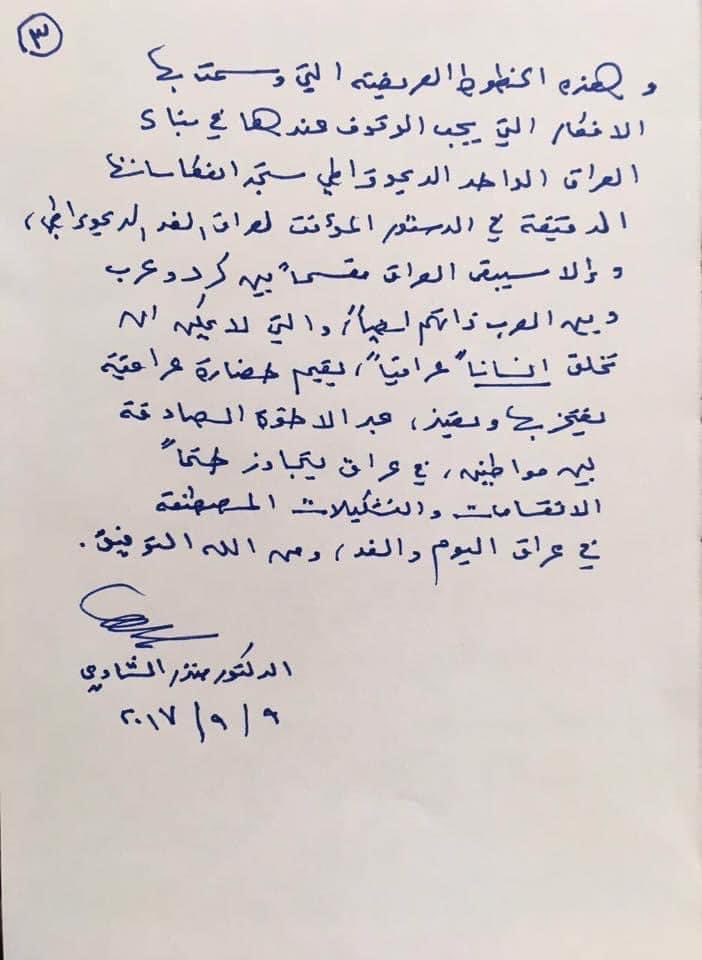 ٣
وهذه الخطوط العريضة التي وسمت بها
الافكار التي يجب الوقوف عندها في بناء
العراق الواحد الديموقراطي ستجد انعكاساتها
الدقيقة في الدستور المؤقت لعراق الغد الديموقراطي،
وإلا سيبقى العراق مقسماً بين كرد وعرب
وبين العرب ذاتهم ايضاً، والتي لا يمكن ان
تخلق انساناً "عراقياً"، يقيم حضارة عراقية
يفتخر بها ويعتز، عبر الاخوة الصادقة
بين مواطنيه، في عراق يتجاوز حتماً
الانقسامات والتشكيلات المصطنعة
في عراق اليوم والغد، ومن الله التوفيق.
الدكتور منذر الشاوي
٩/٩/٢٠١٧